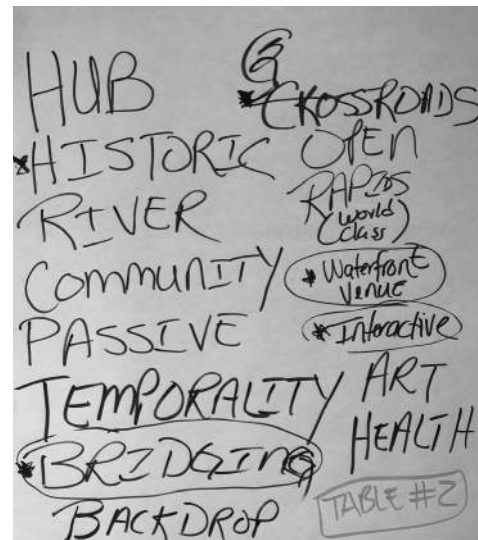 HUB
*HISTORIC
RIVER
COMMUNITY
PASSIVE
TEMPORALITY
*BRIDGING
BACKDROP
*CROSSROADS
OPEN
RAPIDS
(World
Class)
*Waterfront
Venue
*Interactive
ART
HEALTH
TABLE #2